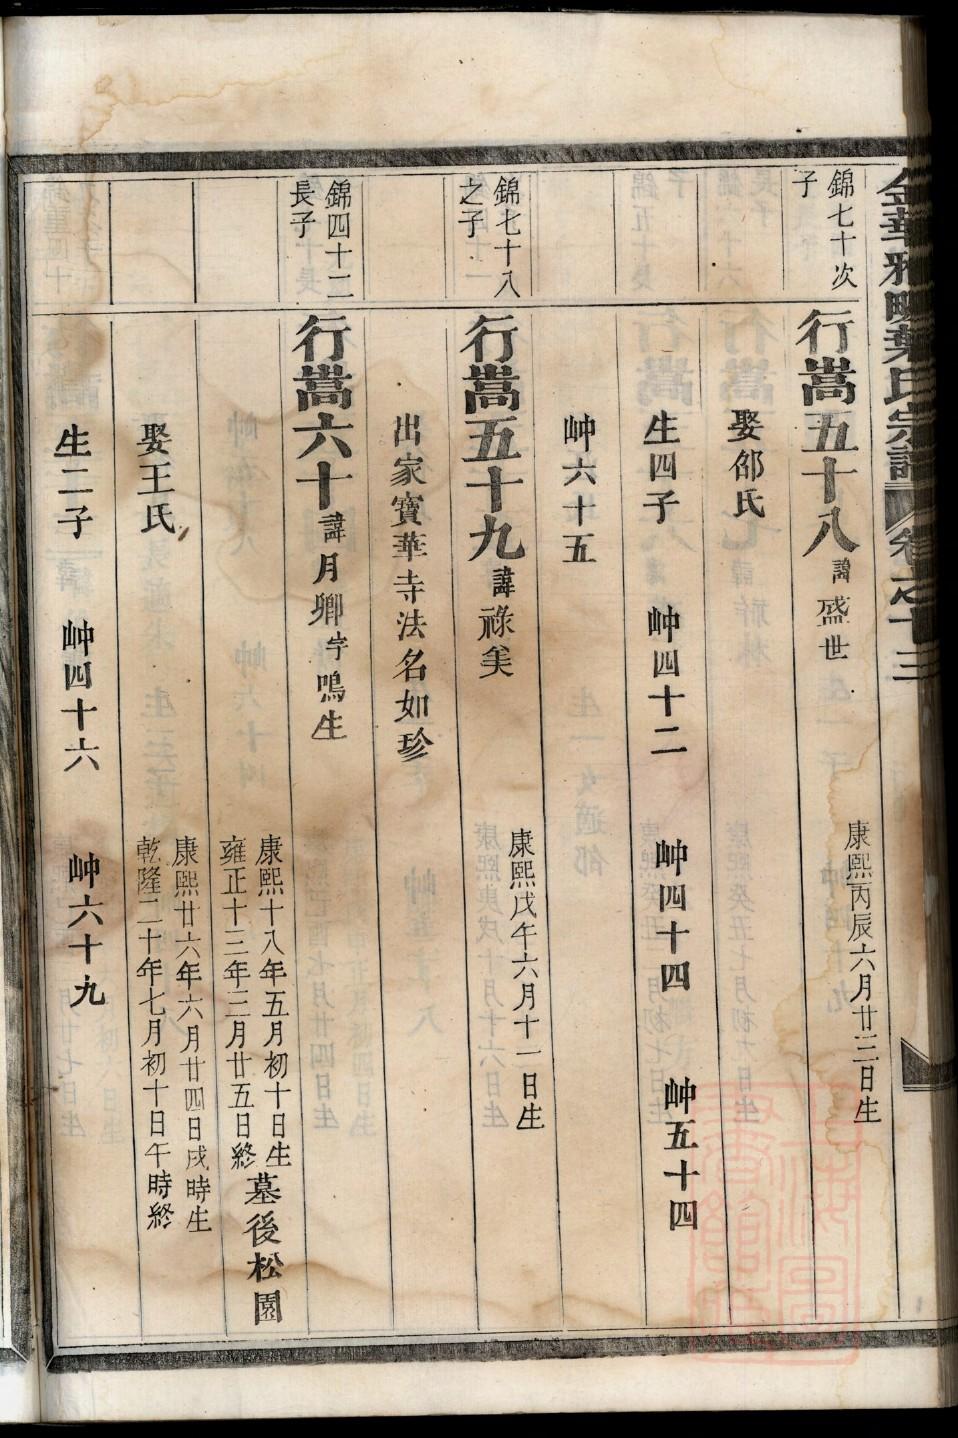 金華雅畈葉氏宗譜 卷之十三
錦七十次子
行嵩五十八 諱盛世 康熙丙辰六月廿三日生
娶邵氏
生四子 岫四十二 岫四十四 岫五十四
岫六十五
錦七十八之子
行嵩五十九 諱祿美 康熙戊午六月十一日生
出家寶華寺法名如珍
錦四十二長子
行嵩六十 諱月卿字鳴生
康熙十八年五月初十日生
雍正十三年三月廿五日終
墓後松園
娶王氏
康熙廿六年六月廿四日戌時生
乾隆二十年七月初十日午時終
生二子 岫四十六 岫六十九